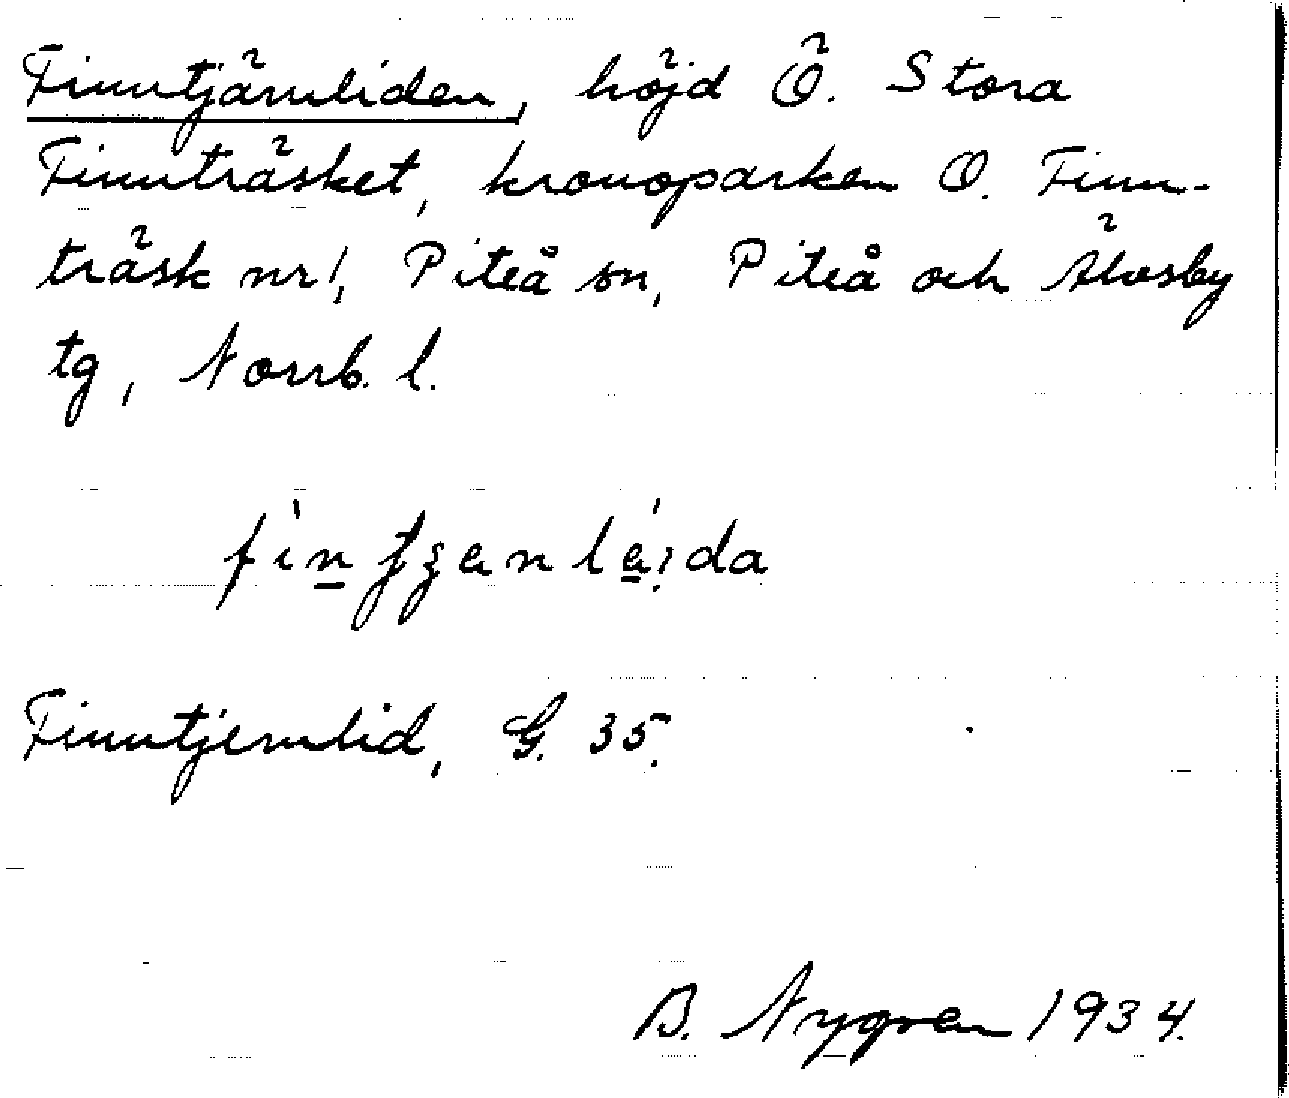 Finntjärnliden, höjd Ö. Stora
Finnträsket, kronoparken Ö. Finn-
träsk nr 1, Piteå sn, Piteå och Älvsby
tg, Norrb. l.
Finntjernlid, G. 35.
B. Nygren 1934.